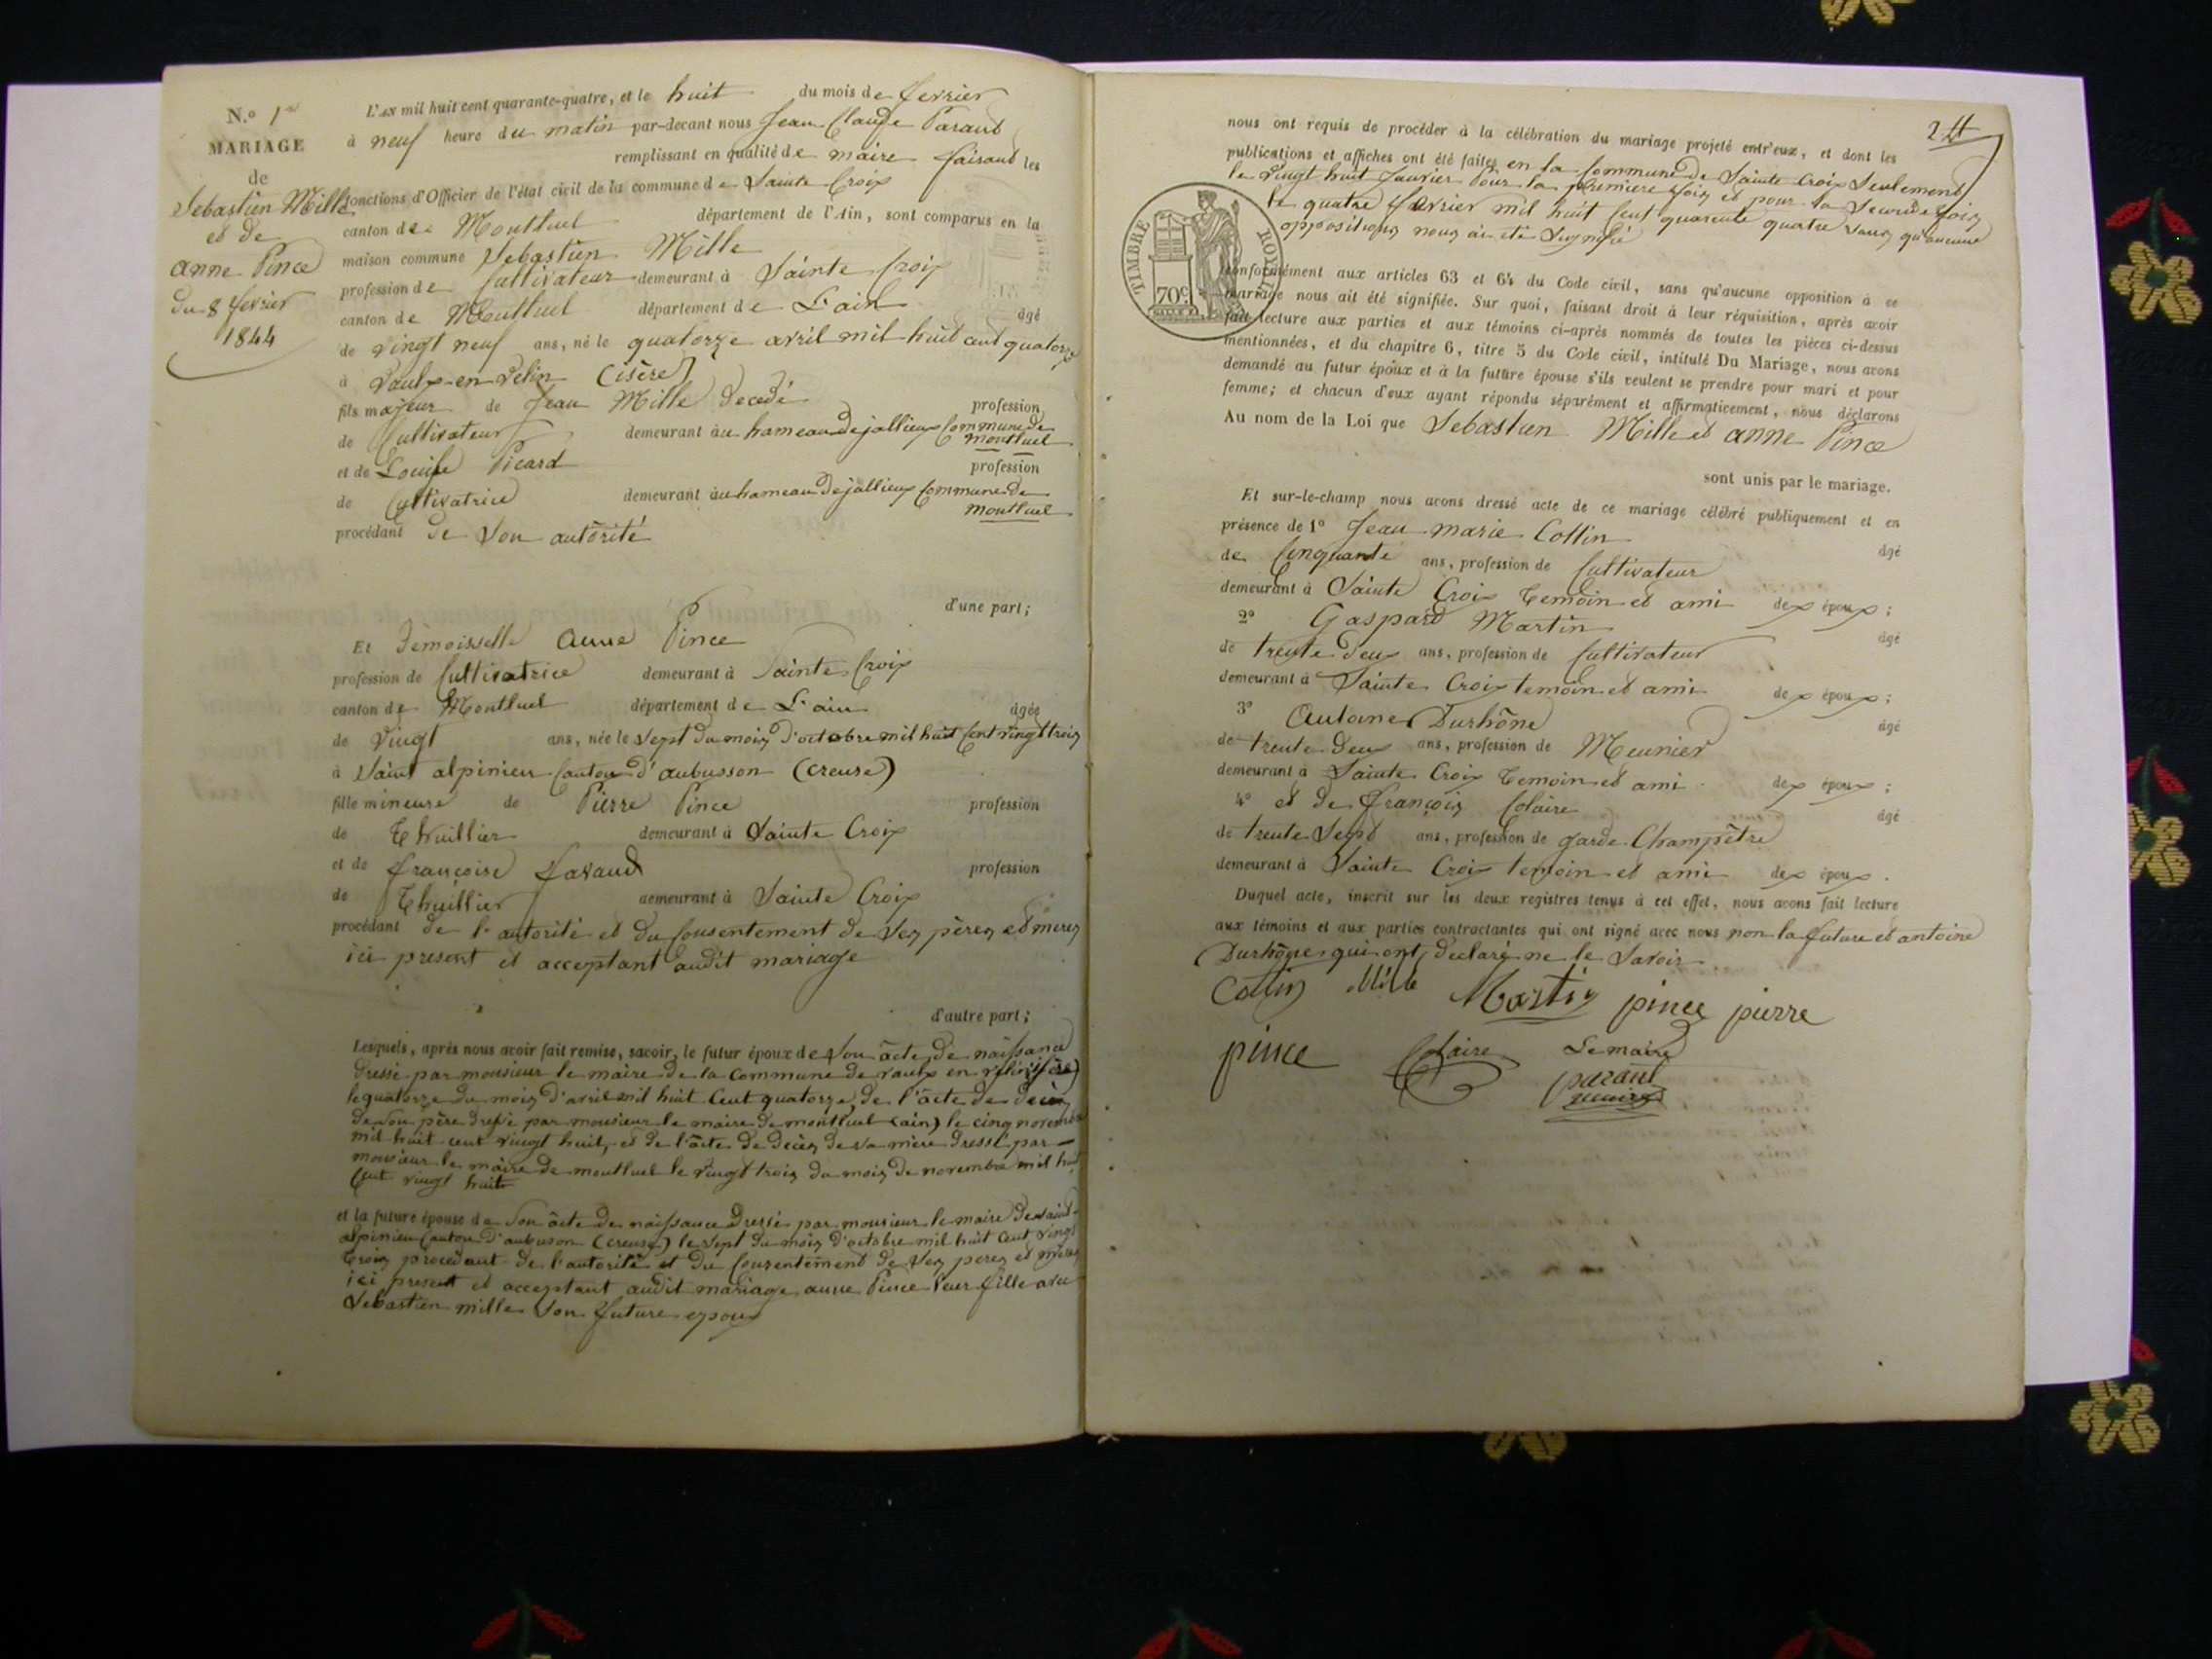 N.º 1er
MARIAGE
de
Sebastien Mille
et de
anne Pince
du 8 fevrier
1844
L'an mil huit cent quarante-quatre, et le huit du mois de fevrier
à neuf heure du matin par-devant nous Jean Claude Paraud
remplissant en qualité de maire faisant les
fonctions d'Officier de l'état civil de la commune de Sainte Croix
canton de Montluel département de l'Ain, sont comparus en la
maison commune Sebastien Mille
profession de Cultivateur demeurant à Sainte Croix
canton de Montluel département de L'ain âgé
de vingt neuf ans, né le quatorze avril mil huit cent quatorze
à Vaulx-en-Velin (isère)
fils majeur de Jean Mille decedé profession
de Cultivateur demeurant au hameau de jallieux Commune de
montluel
et de Louise Picard profession
de Cultivatrice demeurant au hameau de jallieux Commune de
montluel
procédant de son autorité
d'une part;
Et Demoisselle anne Pince
profession de Cultivatrice demeurant à Sainte Croix
canton de Montluel département de L'ain âgée
de vingt ans, née le sept du mois d'octobre mil huit Cent vingt trois
à Saint alpinien Canton d'aubusson (creuse)
fille mineure de Pierre Pince profession
de Thuillier demeurant à Sainte Croix
et de françoise favaud profession
de Thuillier demeurant à Sainte Croix
procédant de l'autorité et du Consentement de ses pères et meres
ici present et acceptant audit mariage
d'autre part;
Lesquels, après nous avoir fait remise, savoir, le futur époux de son acte de naissance
dressé par monsieur le maire de la commune de vaulx en velin (isère)
le quatorze du mois d'avril mil huit Cent quatorze, de l'acte de decès
de son père dressé par monsieur le maire de montluel (ain) le cinq novembre
mil huit cent vingt huit, et de l'acte de decès de sa mère dressé par
monsieur le maire de montluel le vingt trois du mois de novembre mil huit
Cent vingt huit
et la future épouse de son acte de naissance dressé par monsieur le maire de saint
alpinien Canton d'aubuson (creuse) le sept du mois d'octobre mil huit Cent vingt
trois procedant de l'autorité et du Consentement de ses peres et meres
ici present et acceptant audit mariage anne Pince leur fille avec
Sebastien mille son future epoux
2
nous ont requis de procéder à la célébration du mariage projeté entr'eux, et dont les
publications et affiches ont été faites en la Commune de Sainte Croix Seulement
le vingt huit Janvier Pour la premiere fois et pour la Seconde fois
le quatre fevrier mil huit Cent quarente quatre sans qu'aucune
oppositions nous ai eté Signifié
TIMBRE ROYAL
70c
conformément aux articles 63 et 64 du Code civil, sans qu'aucune opposition à ce
mariage nous ait été signifiée. Sur quoi, faisant droit à leur réquisition, après avoir
fait lecture aux parties et aux témoins ci-après nommés de toutes les pièces ci-dessus
mentionnées, et du chapitre 6, titre 5 du Code civil, intitulé Du Mariage, nous avons
demandé au futur époux et à la future épouse s'ils veulent se prendre pour mari et pour
femme; et chacun d'eux ayant répondu séparément et affirmativement, nous déclarons
Au nom de la Loi que Sebastien Mille et anne Pince
sont unis par le mariage.
Et sur-le-champ nous avons dressé acte de ce mariage célébré publiquement et en
présence de 1º Jean marie Collin âgé
de Cinquante ans, profession de Cultivateur
demeurant à Sainte Croix temoin et ami des époux;
2º Gaspard Martin âgé
de trente deux ans, profession de Cultivateur
demeurant à Sainte Croix temoin et ami des époux;
3º Antoine Durhône âgé
de trente deux ans, profession de Meunier
demeurant à Sainte Croix temoin et ami des époux;
4º et de françois Colaire âgé
de trente sept ans, profession de garde Champêtre
demeurant à Sainte Croix temoin et ami des époux.
Duquel acte, inscrit sur les deux registres tenus à cet effet, nous avons fait lecture
aux témoins et aux parties contractantes qui ont signé avec nous non la future et antoine
Durhône qui ont declaré ne le savoir
Collin Mille Martin pince pierre
pince Colaire Le maire
paraud